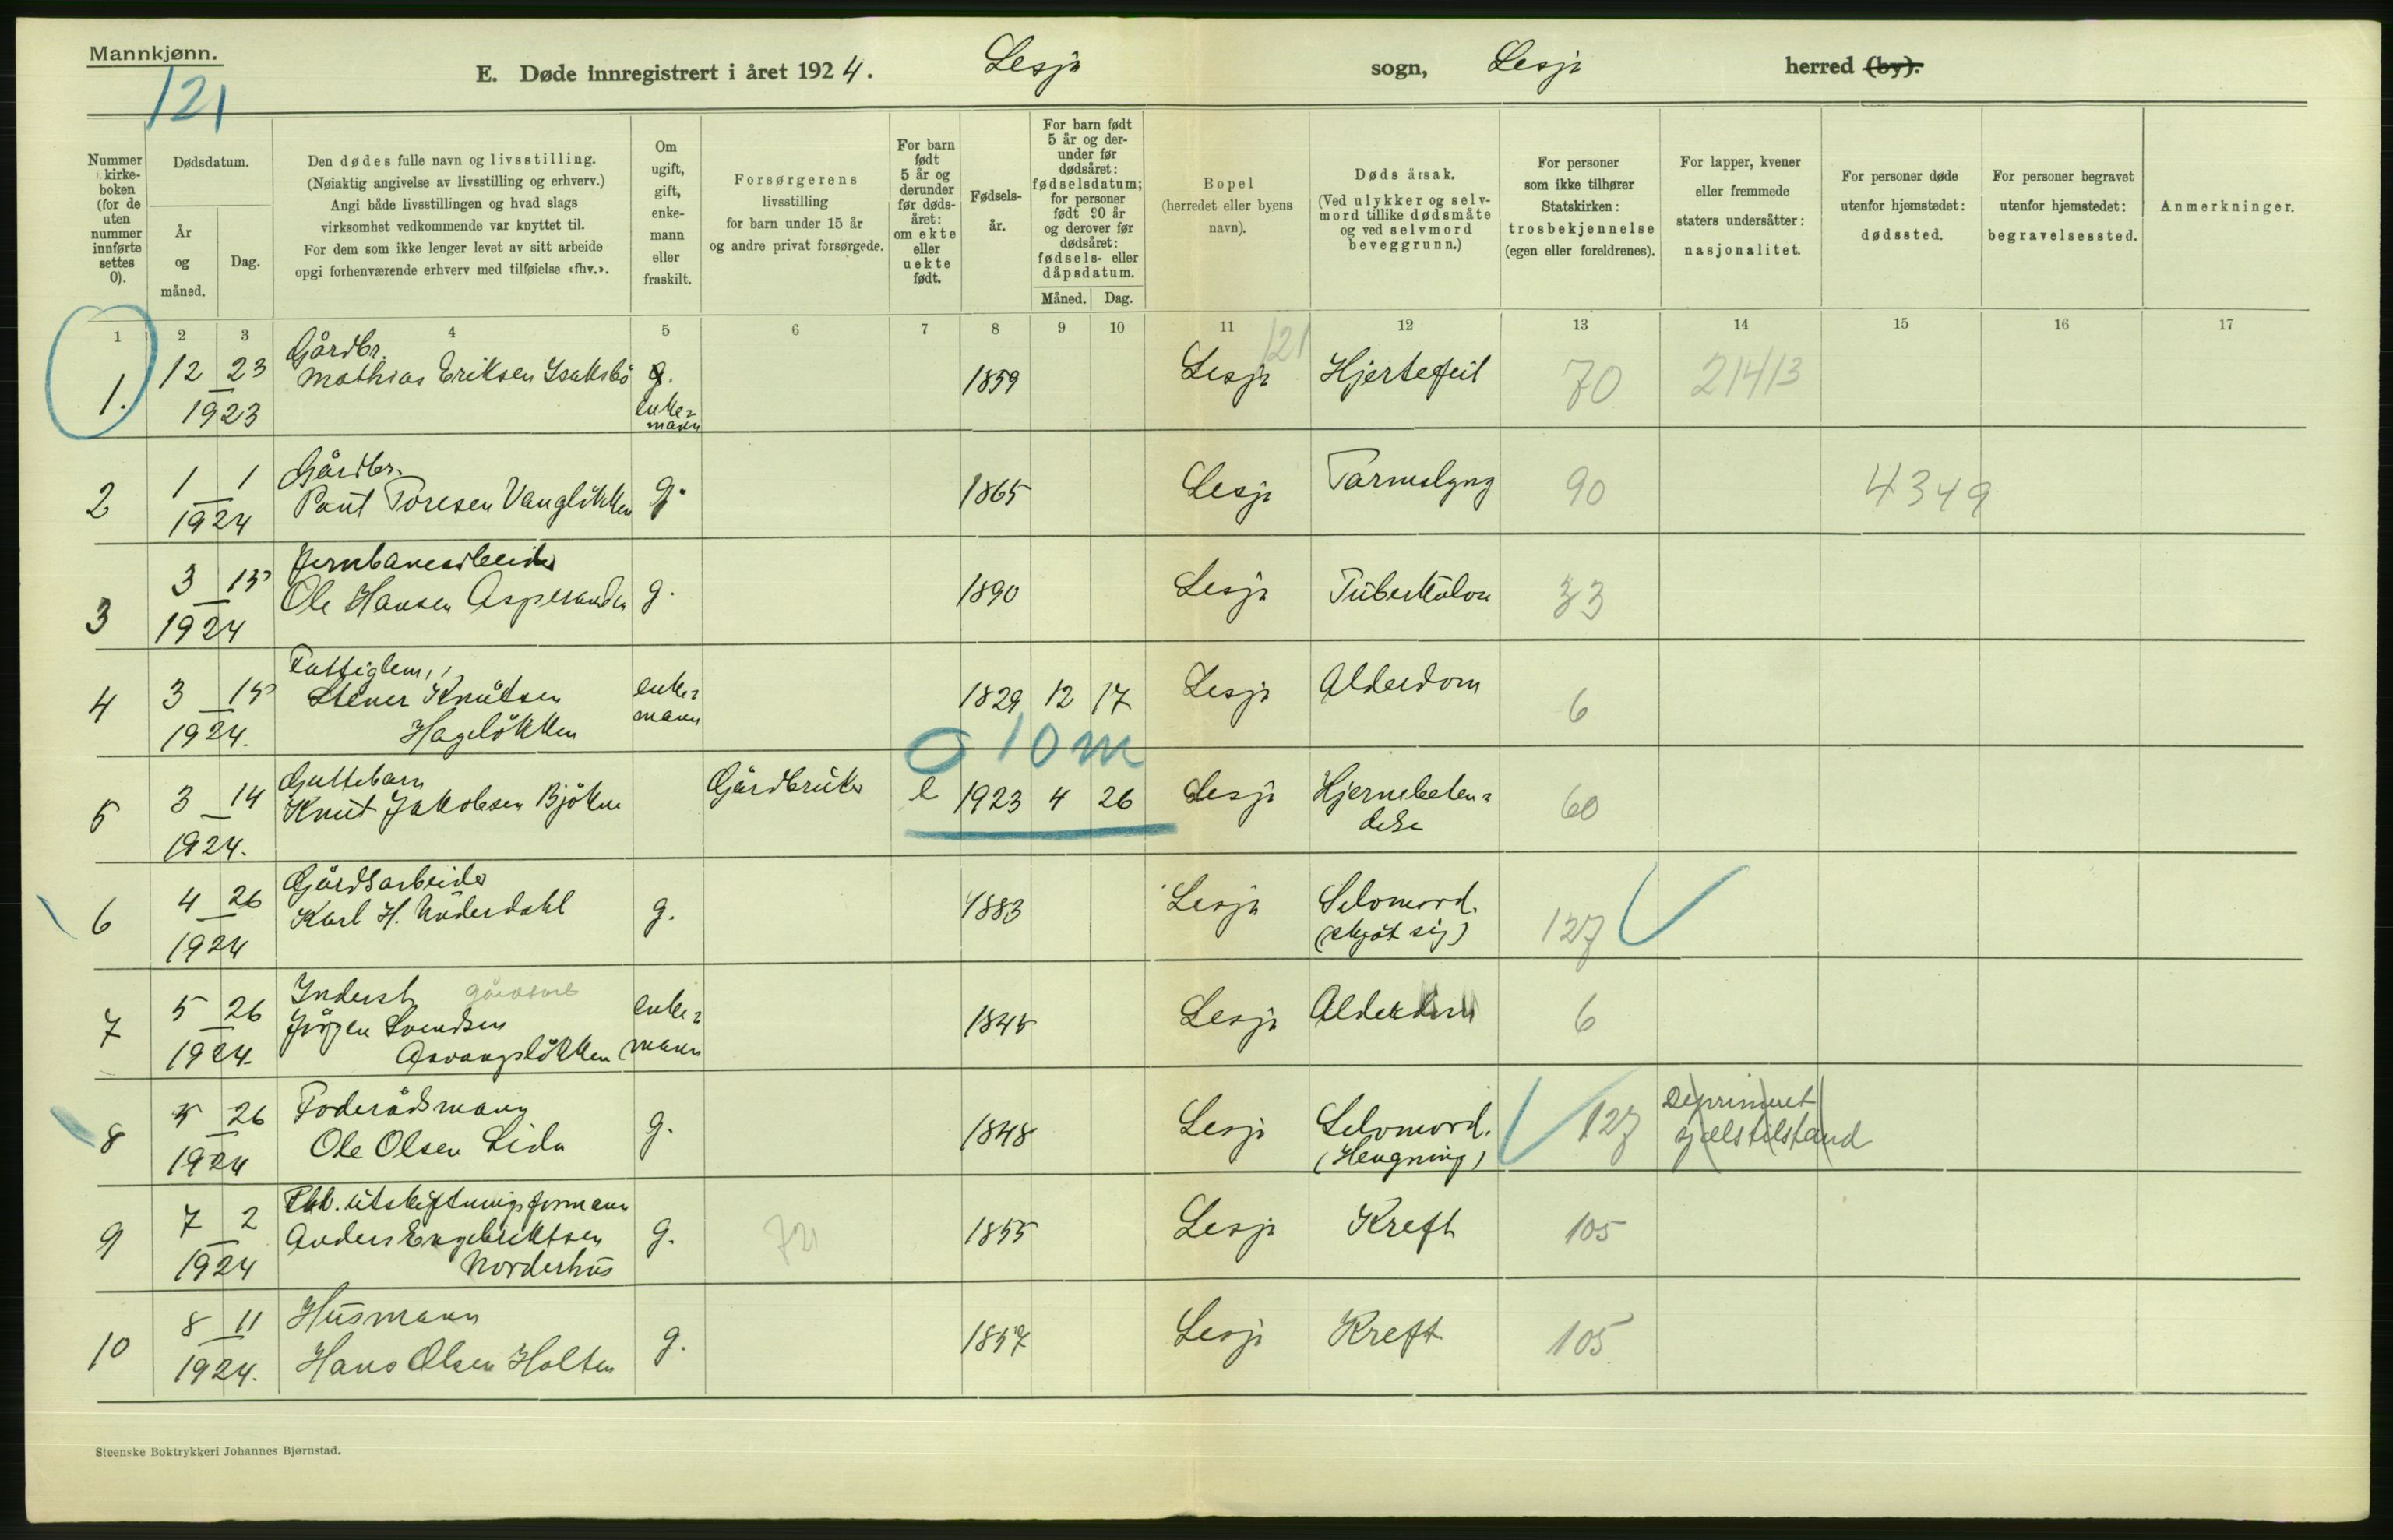 Mannkjønn.
121
E. Døde innregistrert i året 1924. Lesja sogn, Lesja herred (by).
Nummer
kirke-
boken
(for de
uten
nummer
innførte
settes
0).
Dødsdatum.
År
og
måned.
Dag.
Den dødes fulle navn og livsstilling.
(Nøiaktig angivelse av livsstilling og erhverv.)
Angi både livsstillingen og hvad slags
virksomhet vedkommende var knyttet til.
For dem som ikke lenger levet av sitt arbeide
opgi forhenværende erhverv med tilføielse «fhv.».
Om
ugift,
gift,
enke-
mann
eller
fraskilt.
Forsørgerens
livsstilling
for barn under 15 år
og andre privat forsørgede.
For barn
født
5 år og
derunder
før døds-
året:
om ekte
eller
uekte
født.
Fødsels-
år.
For barn født
5 år og der-
under før
dødsåret:
fødselsdatum;
for personer
født 90 år
og derover før
dødsåret:
fødsels- eller
dåpsdatum.
Måned. Dag.
Bopel
(herredet eller byens
navn).
Dødsårsak.
(Ved ulykker og selv-
mord tillike dødsmåte
og ved selvmord
beveggrunn.)
For personer
som ikke tilhører
Statskirken:
trosbekjennelse
(egen eller foreldrenes).
For lapper, kvener
eller fremmede
staters undersåtter:
nasjonalitet.
For personer døde
utenfor hjemstedet:
dødssted.
For personer begravet
utenfor hjemstedet:
begravelsessted.
Anmerkninger.
1 2 3 4 5 6 7 8 9 10 11 12 13 14 15 16 17
121
Gårdbr.
1. 12 23 Mathias Eriksen Isaksbö g. 1859 Lesja Hjertefeil 70 21413
1923 enke-
mann
Gårdbr.
2 1 1 Poul Toresen Vanglökken g. 1865 Lesja Tarmslyng 90 4349
1924
Jernbanearbeider
3 3 15 Ole Hansen Asperanden g. 1890 Lesja Tuberkulose 33
1924
Fattiglem,
4 3 15 Stener Knutsen enke- 1829 12 17 Lesja Alderdom 6
1924. Hagelökken mann
0 10 m
Guttebarn
5 3 14 Knut Jakobsen Björkne Gårdbruker e 1923 4 26 Lesja Hjernebeten- 60
1924. delse
Gårdsarbeider
6 4 26 Karl H. Nöderdahl g. 1883 Lesja Selvmord. 127
1924 (skjöt sig)
Inderst gårdsarb
7 5 26 Jörgen Svendsen enke- 1845 Lesja Alderdom 6
1924. Aavangslökken mann
Foderådsmann
8 5 26 Ole Olsen Lida g. 1848 Lesja Selvmord. 127 Deprimert
1924 (Hengning) sjælstilstand
Fhv. utskiftningsformann
9 7 2 Anders Engebriktsen g. 721 1855 Lesja Kreft 105
1924 Norderhus
Husmann
10 8 11 Hans Olsen Holten g. 1857 Lesja Kreft 105
1924.
Steenske Boktrykkeri Johannes Bjørnstad.